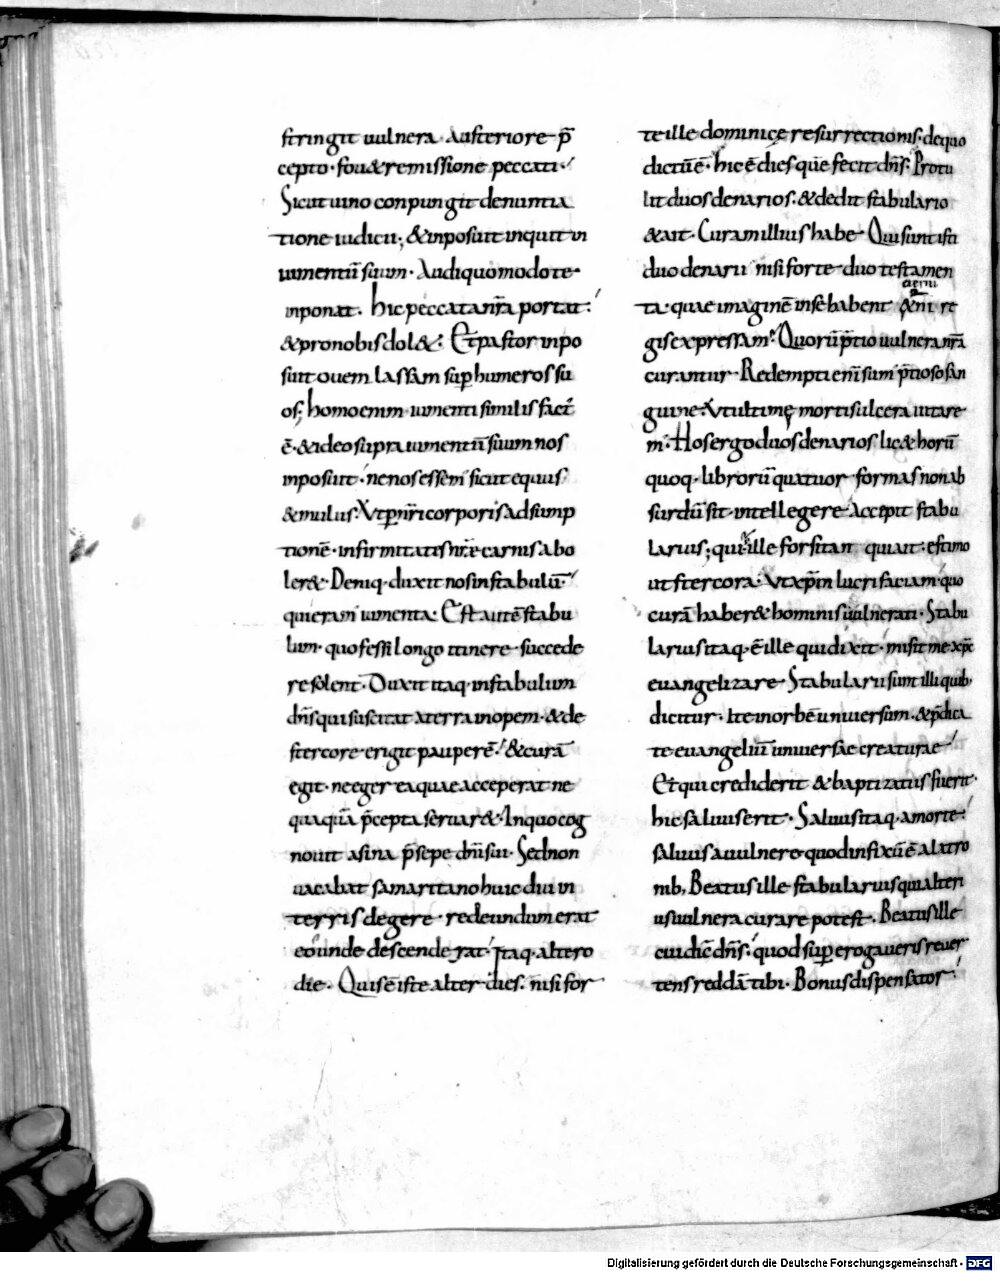 stringit uulnera· Austeriore p̄
cepto· fouet remissione peccati·
Sicut uino conpungit denuntia
tione iudicii; & inposuit inquit in
iumentū suum· Audi quomodo te·
inponat. hic peccata nr̄a portat:
& pro nobis dol&: Et pastor inpo
suit ouem lassam sup̄ humeros su
os; homo enim iumenti similis fact̄
ē· & ideo supra iumentū suum nos
inposuit· ne nos essem sicut equus
& mulus· Vt p̄ nr̄i corporis adsump
tionē· infirmitatis nr̄e carnis abo
ler&· Deniq· duxit nos in stabulū·
qui eram iumenta· Est autē stabu
lum· quo fessi longo itinere· succede
re solent· Duxit itaq· in stabulum
dn̄s qui suscitat a terra inopem· & de
stercore erigit pauperē· & curā
egit· ne eger ea quae acceperat ne
quaquā p̄cepta seruar&· In quo cog
nouit asina p̄sepe dn̄i sui· Sed non
uacabat samaritano huic diu in
terris degere· redeundum erat
eo unde descenderat· Itaq· altero
die· Quis ē iste alter dies· nisi for
te ille dominicę resurrectionis· de quo
dictū ē· hic ē dies quē fecit dn̄s· Protu
lit duos denarios· & dedit stabulario
& ait· Curam illius habe· Qui sunt isti
duo denarii nisi forte duo testamen
ta· quae imaginē in se habent &erni re
gis expressam· Quorū p̄tio uulnera nr̄a
curantur· Redempti enī sum· p̄tioso san
guine· Vt ultimę mortis ulcera uitare
m· Hos ergo duos denarios lic& horū
quoq· librorū quatuor formas non ab
surdū sit· intellegere· Accepit stabu
larius; qui· ille forsitan qui ait: estimo
ut stercora· Vt xp̄m lucri faciam· quo
curā haber& hominis uulnerati· Stabu
larius itaq· ē ille qui dixit· misit me xp̄s
euangelizare· Stabularii sunt illi quib·
dicitur· Ite in orbē uniuersum· & p̄dica
te euangeliū uniuersae creaturae·
Et qui crediderit & baptizatus fuerit·
hic saluus erit· Saluus itaq· a morte·
saluus a uulnere quod infixū ē a latro
nib; Beatus ille stabularius qui alteri
us uulnera curare potest· Beatus ille
cui dic̄ dn̄s· quod sup̄ erogaueris reuer
tens reddā tibi· Bonus dispensator·
Digitalisierung gefördert durch die Deutsche Forschungsgemeinschaft - DFG